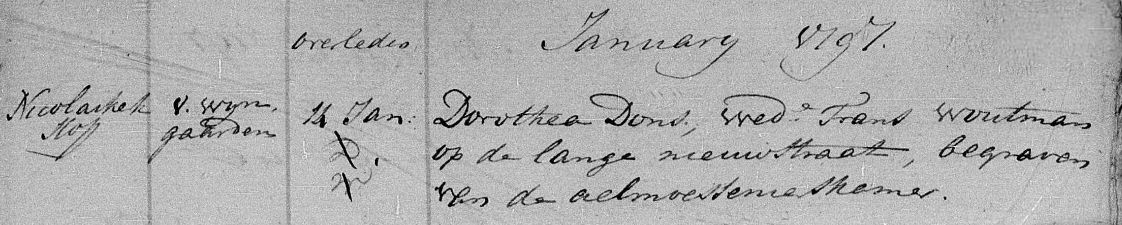 overleden January 1797.
Nicolaikerk v. Wijn. 14 Jan: Dorothea Dons, wed.e Frans Woutman
Hoff gaarden op de lange nieuwstraat, begraven
van de aelmoessenierskamer.